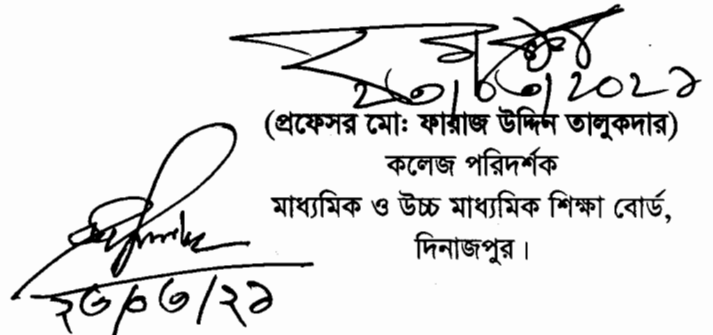 ২৩/০৩/২০২১
(প্রফেসর মো: ফারাজ উদ্দিন তালুকদার)
কলেজ পরিদর্শক
মাধ্যমিক ও উচ্চ মাধ্যমিক শিক্ষা বোর্ড,
দিনাজপুর।
২৩/০৩/২১